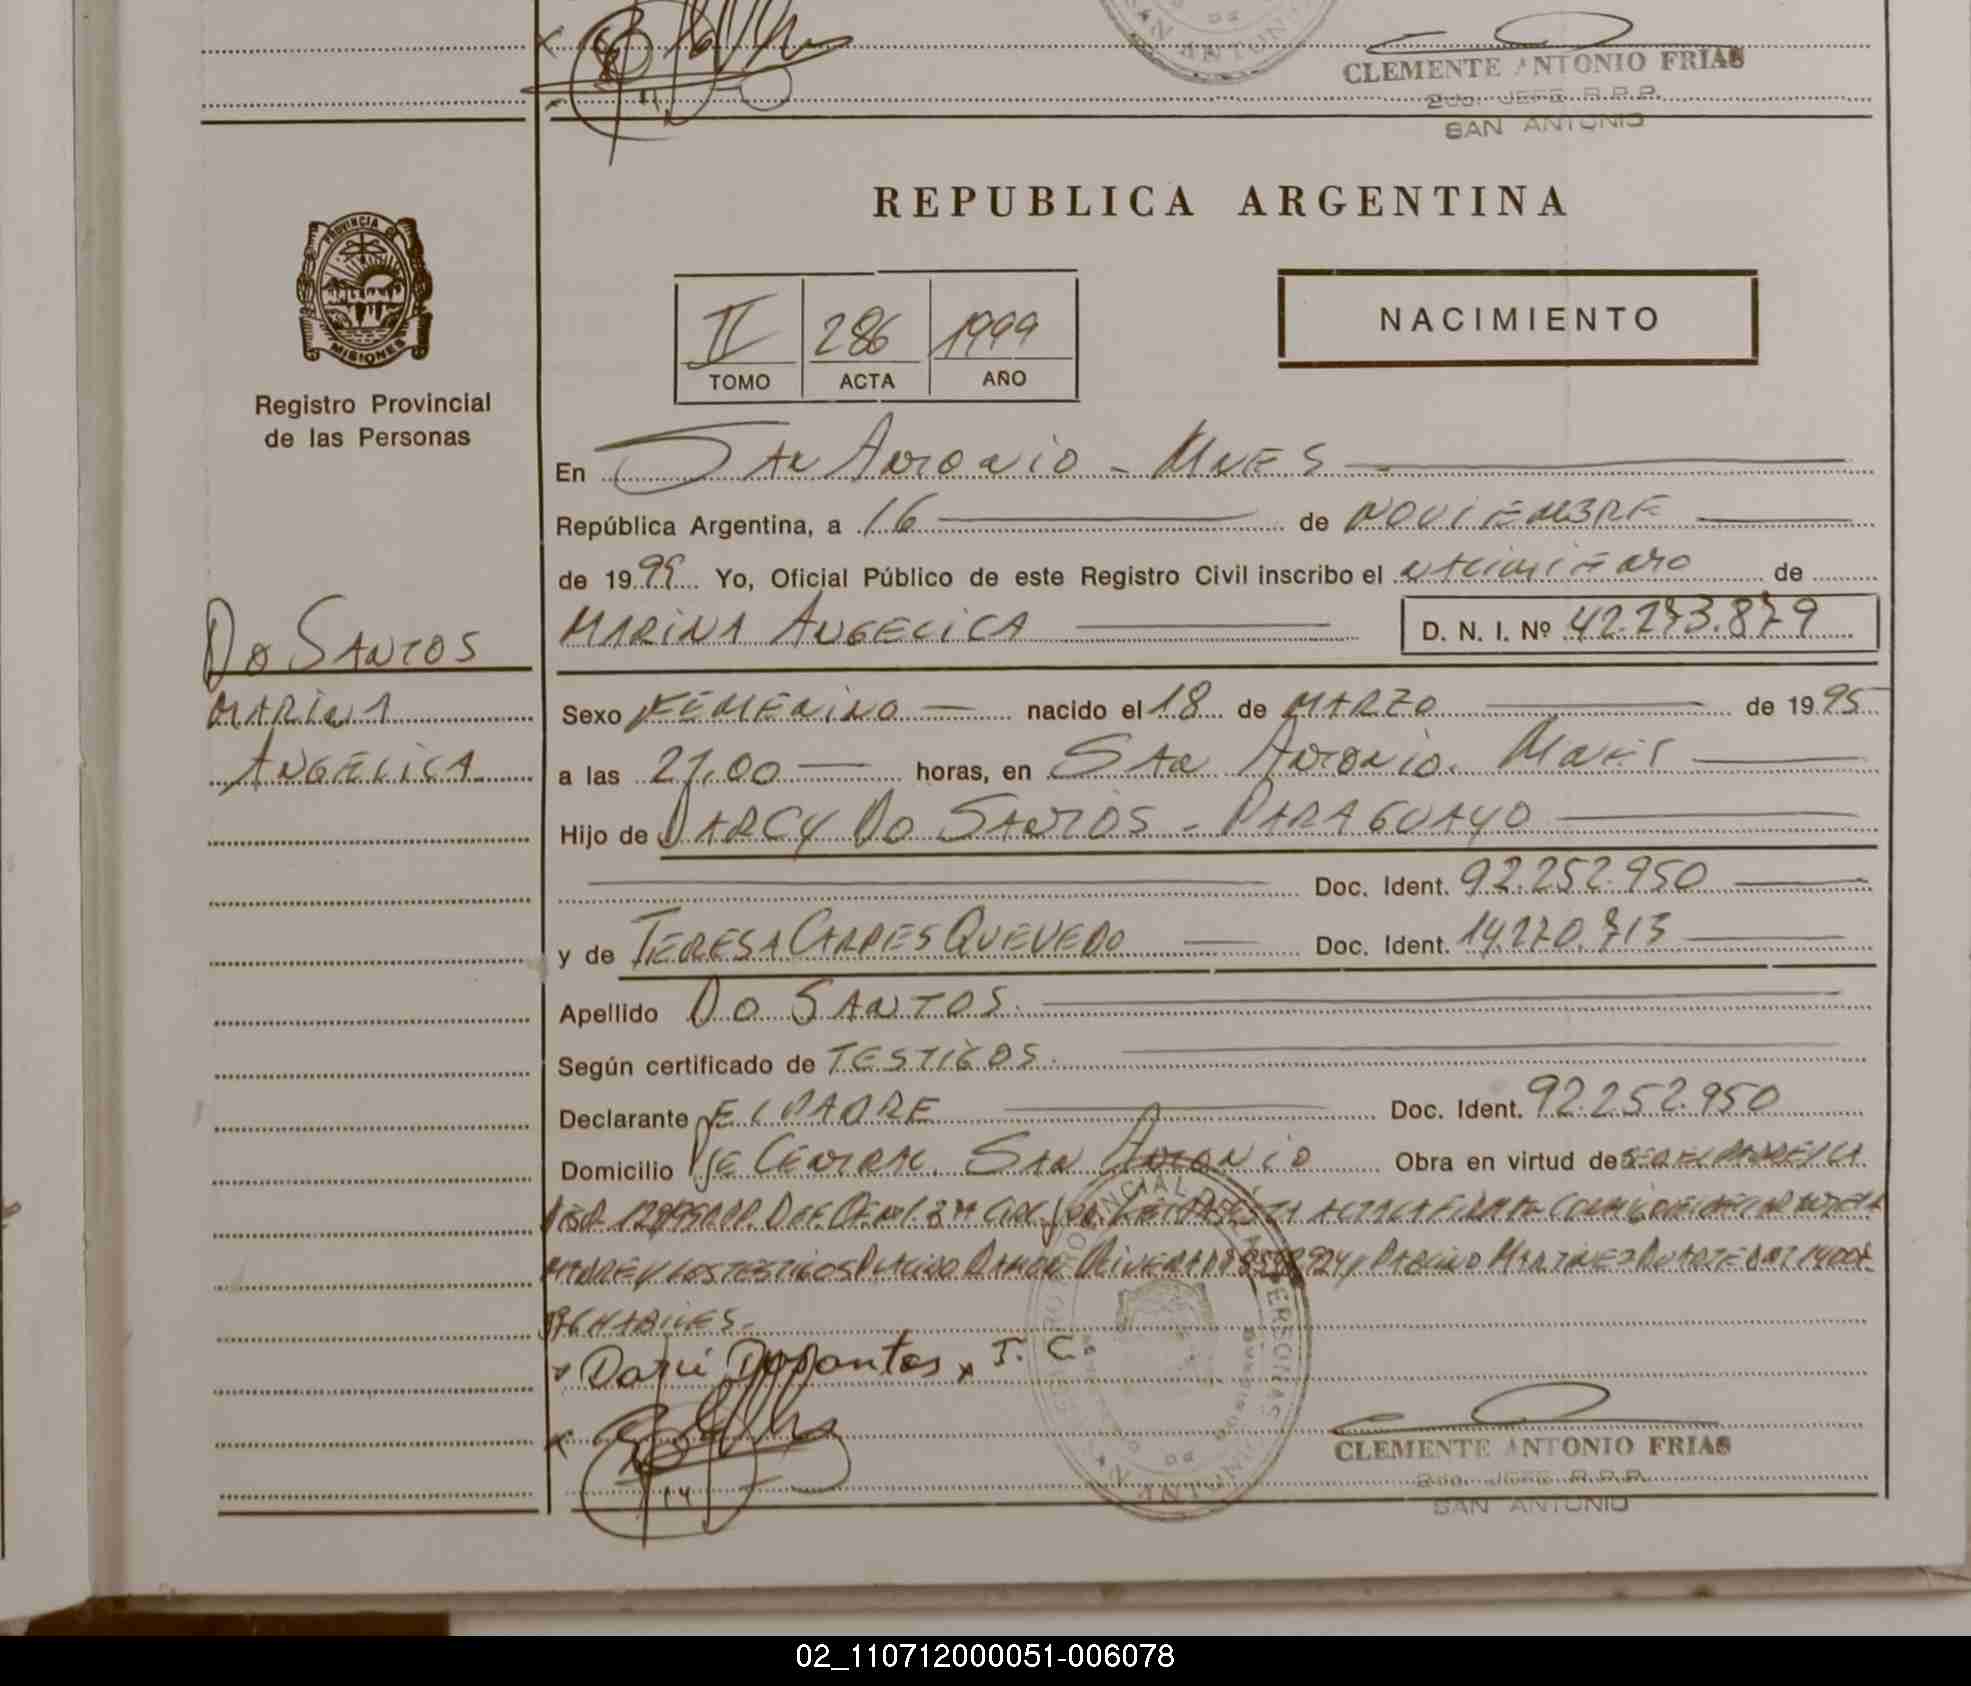 CLEMENTE ANTONIO FRIAS
2do. JEFE R.P.P.
SAN ANTONIO
REPUBLICA ARGENTINA
PROVINCIA DE
MISIONES
Registro Provincial
de las Personas
II 286 1999
TOMO ACTA AÑO
NACIMIENTO
En SAN ANTONIO - MNES
República Argentina, a 16 de NOVIEMBRE
de 1999 Yo, Oficial Público de este Registro Civil inscribo el NACIMIENTO de
MARINA ANGELICA D. N. I. Nº 42.273.879
DO SANTOS
MARINA
ANGELICA
Sexo FEMENINO nacido el 18 de MARZO de 1995
a las 21,00 horas, en SAN ANTONIO. MNES
Hijo de DARCY DO SANTOS - PARAGUAYO
Doc. Ident. 92.252.950
y de TERESA CARPES QUEVEDO Doc. Ident. 14.270.713
Apellido DO SANTOS.
Según certificado de TESTIGOS.
Declarante EL PADRE Doc. Ident. 92.252.950
Domicilio Pje CENTRAL. SAN ANTONIO Obra en virtud de
MADRE Y LOS TESTIGOS PLACIDO RAMON RIVERA MARTINEZ DUARTE
HABILES.
x Darci Dosantos x T. C.
x
14
REGISTRO PROVINCIAL DE LAS PERSONAS
SAN ANTONIO
CLEMENTE ANTONIO FRIAS
2do. JEFE R.P.P.
SAN ANTONIO
02_110712000051-006078